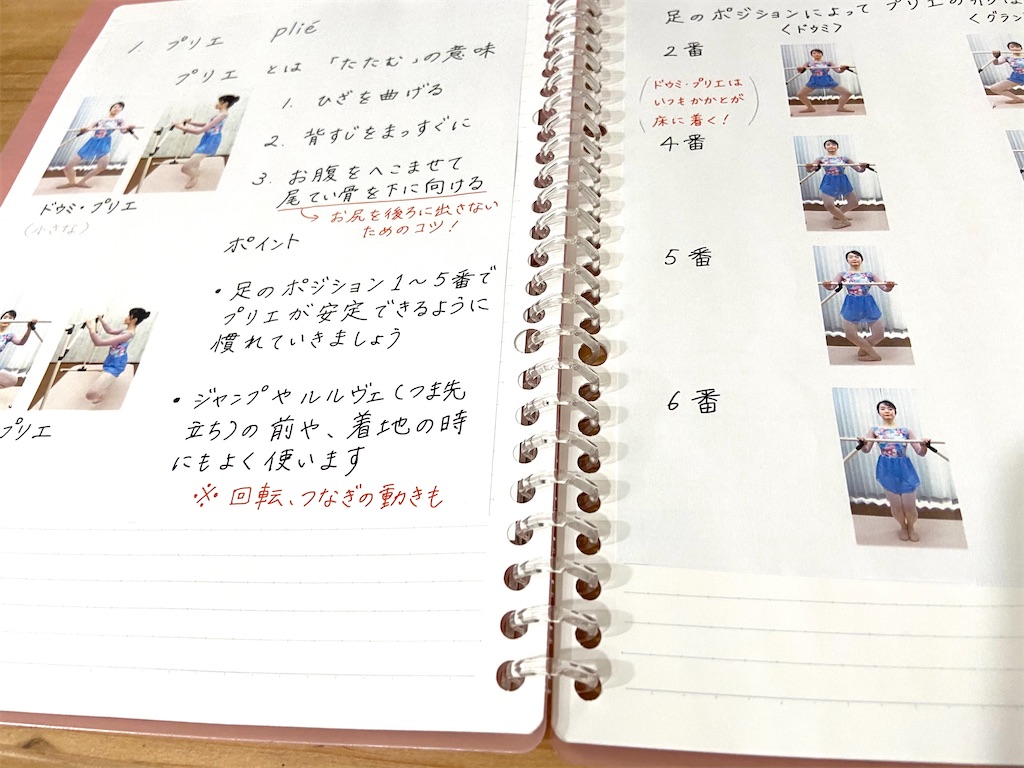 1. プリエ plié
プリエ とは「たたむ」の意味
1. ひざを曲げる
2. 背すじをまっすぐに
3. お腹をへこませて
尾てい骨を下に向ける
→ お尻を後ろに出さない
ためのコツ!
ドゥミ・プリエ
(小さな)
ポイント
・足のポジション1〜5番で
プリエが安定できるように
慣れていきましょう
プリエ
・ジャンプやルルヴェ(つま先
立ち)の前や、着地の時
にもよく使います
※回転、つなぎの動きも
足のポジションによって プリエの
<ドゥミ>
<グラン
2番
(ドゥミ・プリエは
いつもかかとが
床に着く!)
4番
5番
6番